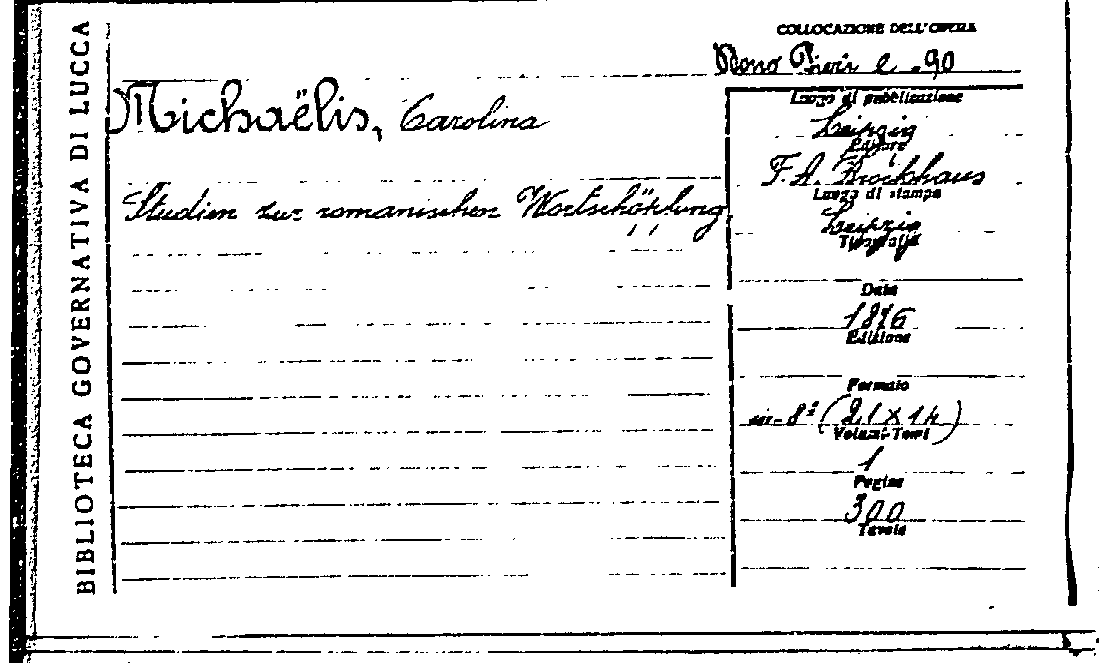 BIBLIOTECA GOVERNATIVA DI LUCCA
COLLOCAZIONE DELL'OPERA
90
Michaëlis, Carolina
Studien zur romanischen Wortschöpfung.
Luogo di pubblicazione
Leipzig
Editore
F. A. Brockhaus
Luogo di stampa
Leipzig
Tipografia
Data
1876
Edizione
Formato
in-8º (21 x 14)
Volumi-Tomi
1
Pagine
300
Tavole